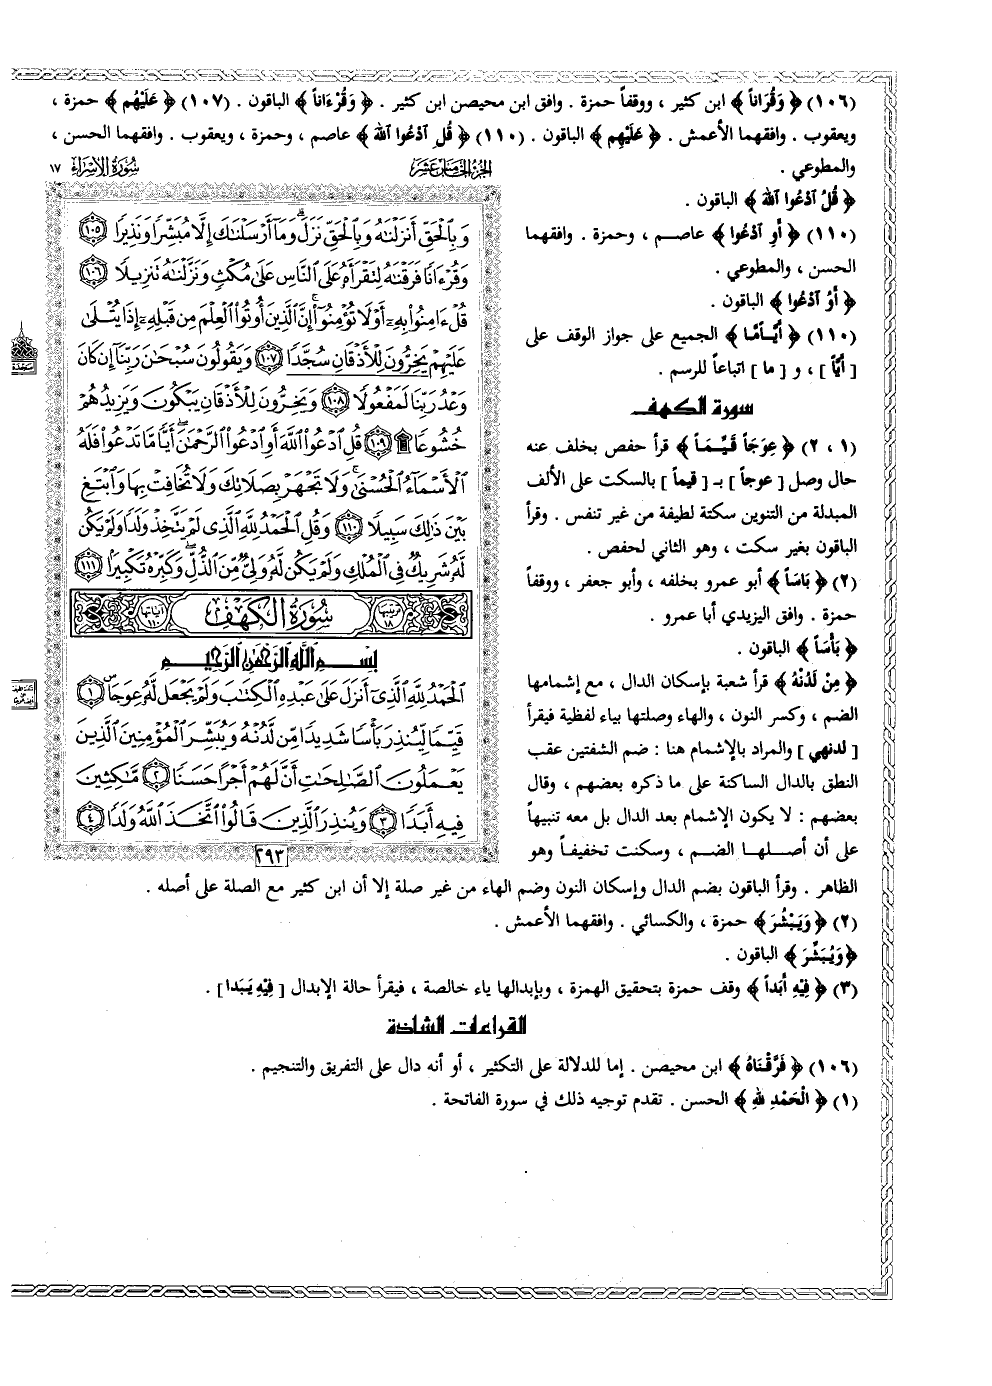 (١٠٦) ﴿ وَقُرَاناً ﴾ ابن كثير ، ووقفاً حمزة . وافق ابن محيصن ابن كثير . ﴿ وَقُرْءَاناً ﴾ الباقون . (١٠٧) ﴿ عَلَيْهُم ﴾ حمزة ،
ويعقوب . وافقهما الأعمش . ﴿ عَلَيْهِم ﴾ الباقون . (١١٠) ﴿ قُلِ ٱدْعُوا ٱللَّهَ ﴾ عاصم ، وحمزة ، ويعقوب . وافقهما الحسن ،
والمطوعي .
الجزء الخامس عشر
سورة الإسراء ١٧
﴿ قُلُ ٱدْعُوا ٱللَّهَ ﴾ الباقون .
(١١٠) ﴿ أَوِ ٱدْعُوا ﴾ عاصم ، وحمزة . وافقهما
الحسن ، والمطوعي .
﴿ أَوُ ٱدْعُوا ﴾ الباقون .
(١١٠) ﴿ أَيَّامَّا ﴾ الجميع على جواز الوقف على
[ أيّاً ] ، و [ ما ] اتباعاً للرسم .
سورة الكهف
(١ ، ٢) ﴿ عِوَجَاً قَيِّمَاً ﴾ قرأ حفص بخلف عنه
حال وصل [ عوجاً ] بـ [ قيماً ] بالسكت على الألف
المبدلة من التنوين سكتة لطيفة من غير تنفس . وقرأ
الباقون بغير سكت ، وهو الثاني لحفص .
(٢) ﴿ بَاسَاً ﴾ أبو عمرو بخلفه ، وأبو جعفر ، ووقفاً
حمزة . وافق اليزيدي أبا عمرو .
﴿ بَأْسَاً ﴾ الباقون .
﴿ مِنْ لَدُنْهُ ﴾ قرأ شعبة بإسكان الدال ، مع إشمامها
الضم ، وكسر النون ، والهاء وصلتها بياء لفظية فيقرأ
[ لدنهي ] والمراد بالإشمام هنا : ضم الشفتين عقب
النطق بالدال الساكنة على ما ذكره بعضهم ، وقال
بعضهم : لا يكون الإشمام بعد الدال بل معه تنبيهاً
على أن أصلها الضم ، وسكنت تخفيفاً وهو
وَبِٱلْحَقِّ أَنزَلْنَٰهُ وَبِٱلْحَقِّ نَزَلَ ۗ وَمَآ أَرْسَلْنَٰكَ إِلَّا مُبَشِّرًا وَنَذِيرًا ١٠٥
وَقُرْءَانًا فَرَقْنَٰهُ لِتَقْرَأَهُۥ عَلَى ٱلنَّاسِ عَلَىٰ مُكْثٍ وَنَزَّلْنَٰهُ تَنزِيلًا ١٠٦
قُلْ ءَامِنُوا۟ بِهِۦٓ أَوْ لَا تُؤْمِنُوٓا۟ ۚ إِنَّ ٱلَّذِينَ أُوتُوا۟ ٱلْعِلْمَ مِن قَبْلِهِۦٓ إِذَا يُتْلَىٰ
عَلَيْهِمْ يَخِرُّونَ لِلْأَذْقَانِ سُجَّدًا ١٠٧ وَيَقُولُونَ سُبْحَٰنَ رَبِّنَآ إِن كَانَ
وَعْدُ رَبِّنَا لَمَفْعُولًا ١٠٨ وَيَخِرُّونَ لِلْأَذْقَانِ يَبْكُونَ وَيَزِيدُهُمْ
خُشُوعًا ۩ ١٠٩ قُلِ ٱدْعُوا۟ ٱللَّهَ أَوِ ٱدْعُوا۟ ٱلرَّحْمَٰنَ ۖ أَيًّا مَّا تَدْعُوا۟ فَلَهُ
ٱلْأَسْمَآءُ ٱلْحُسْنَىٰ ۚ وَلَا تَجْهَرْ بِصَلَاتِكَ وَلَا تُخَافِتْ بِهَا وَٱبْتَغِ
بَيْنَ ذَٰلِكَ سَبِيلًا ١١٠ وَقُلِ ٱلْحَمْدُ لِلَّهِ ٱلَّذِى لَمْ يَتَّخِذْ وَلَدًا وَلَمْ يَكُن
لَّهُۥ شَرِيكٌ فِى ٱلْمُلْكِ وَلَمْ يَكُن لَّهُۥ وَلِىٌّ مِّنَ ٱلذُّلِّ ۖ وَكَبِّرْهُ تَكْبِيرًۢا ١١١
ترتيبها ١٨ سُورَةُ الكَهْفِ آياتها ١١٠
بِسْمِ ٱللَّهِ ٱلرَّحْمَٰنِ ٱلرَّحِيمِ
ٱلْحَمْدُ لِلَّهِ ٱلَّذِىٓ أَنزَلَ عَلَىٰ عَبْدِهِ ٱلْكِتَٰبَ وَلَمْ يَجْعَل لَّهُۥ عِوَجَا ۜ ١
قَيِّمًا لِّيُنذِرَ بَأْسًا شَدِيدًا مِّن لَّدُنْهُ وَيُبَشِّرَ ٱلْمُؤْمِنِينَ ٱلَّذِينَ
يَعْمَلُونَ ٱلصَّٰلِحَٰتِ أَنَّ لَهُمْ أَجْرًا حَسَنًا ٢ مَّٰكِثِينَ
فِيهِ أَبَدًا ٣ وَيُنذِرَ ٱلَّذِينَ قَالُوا۟ ٱتَّخَذَ ٱللَّهُ وَلَدًا ٤
٢٩٣
سجدة
الظاهر . وقرأ الباقون بضم الدال وإسكان النون وضم الهاء من غير صلة إلا أن ابن كثير مع الصلة على أصله .
(٢) ﴿ وَيَبْشُرَ ﴾ حمزة ، والكسائي . وافقهما الأعمش .
﴿ وَيُبَشِّرَ ﴾ الباقون .
(٣) ﴿ فِيْهِ أَبَداً ﴾ وقف حمزة بتحقيق الهمزة ، وبإبدالها ياء خالصة ، فيقرأ حالة الإبدال [ فِيْهِ يَبَدا ] .
القراءات الشاذة
(١٠٦) ﴿ فَرَّقْنَاهُ ﴾ ابن محيصن . إما للدلالة على التكثير ، أو أنه دال على التفريق والتنجيم .
(١) ﴿ الْحَمْدِ لِلَّهِ ﴾ الحسن . تقدم توجيه ذلك في سورة الفاتحة .